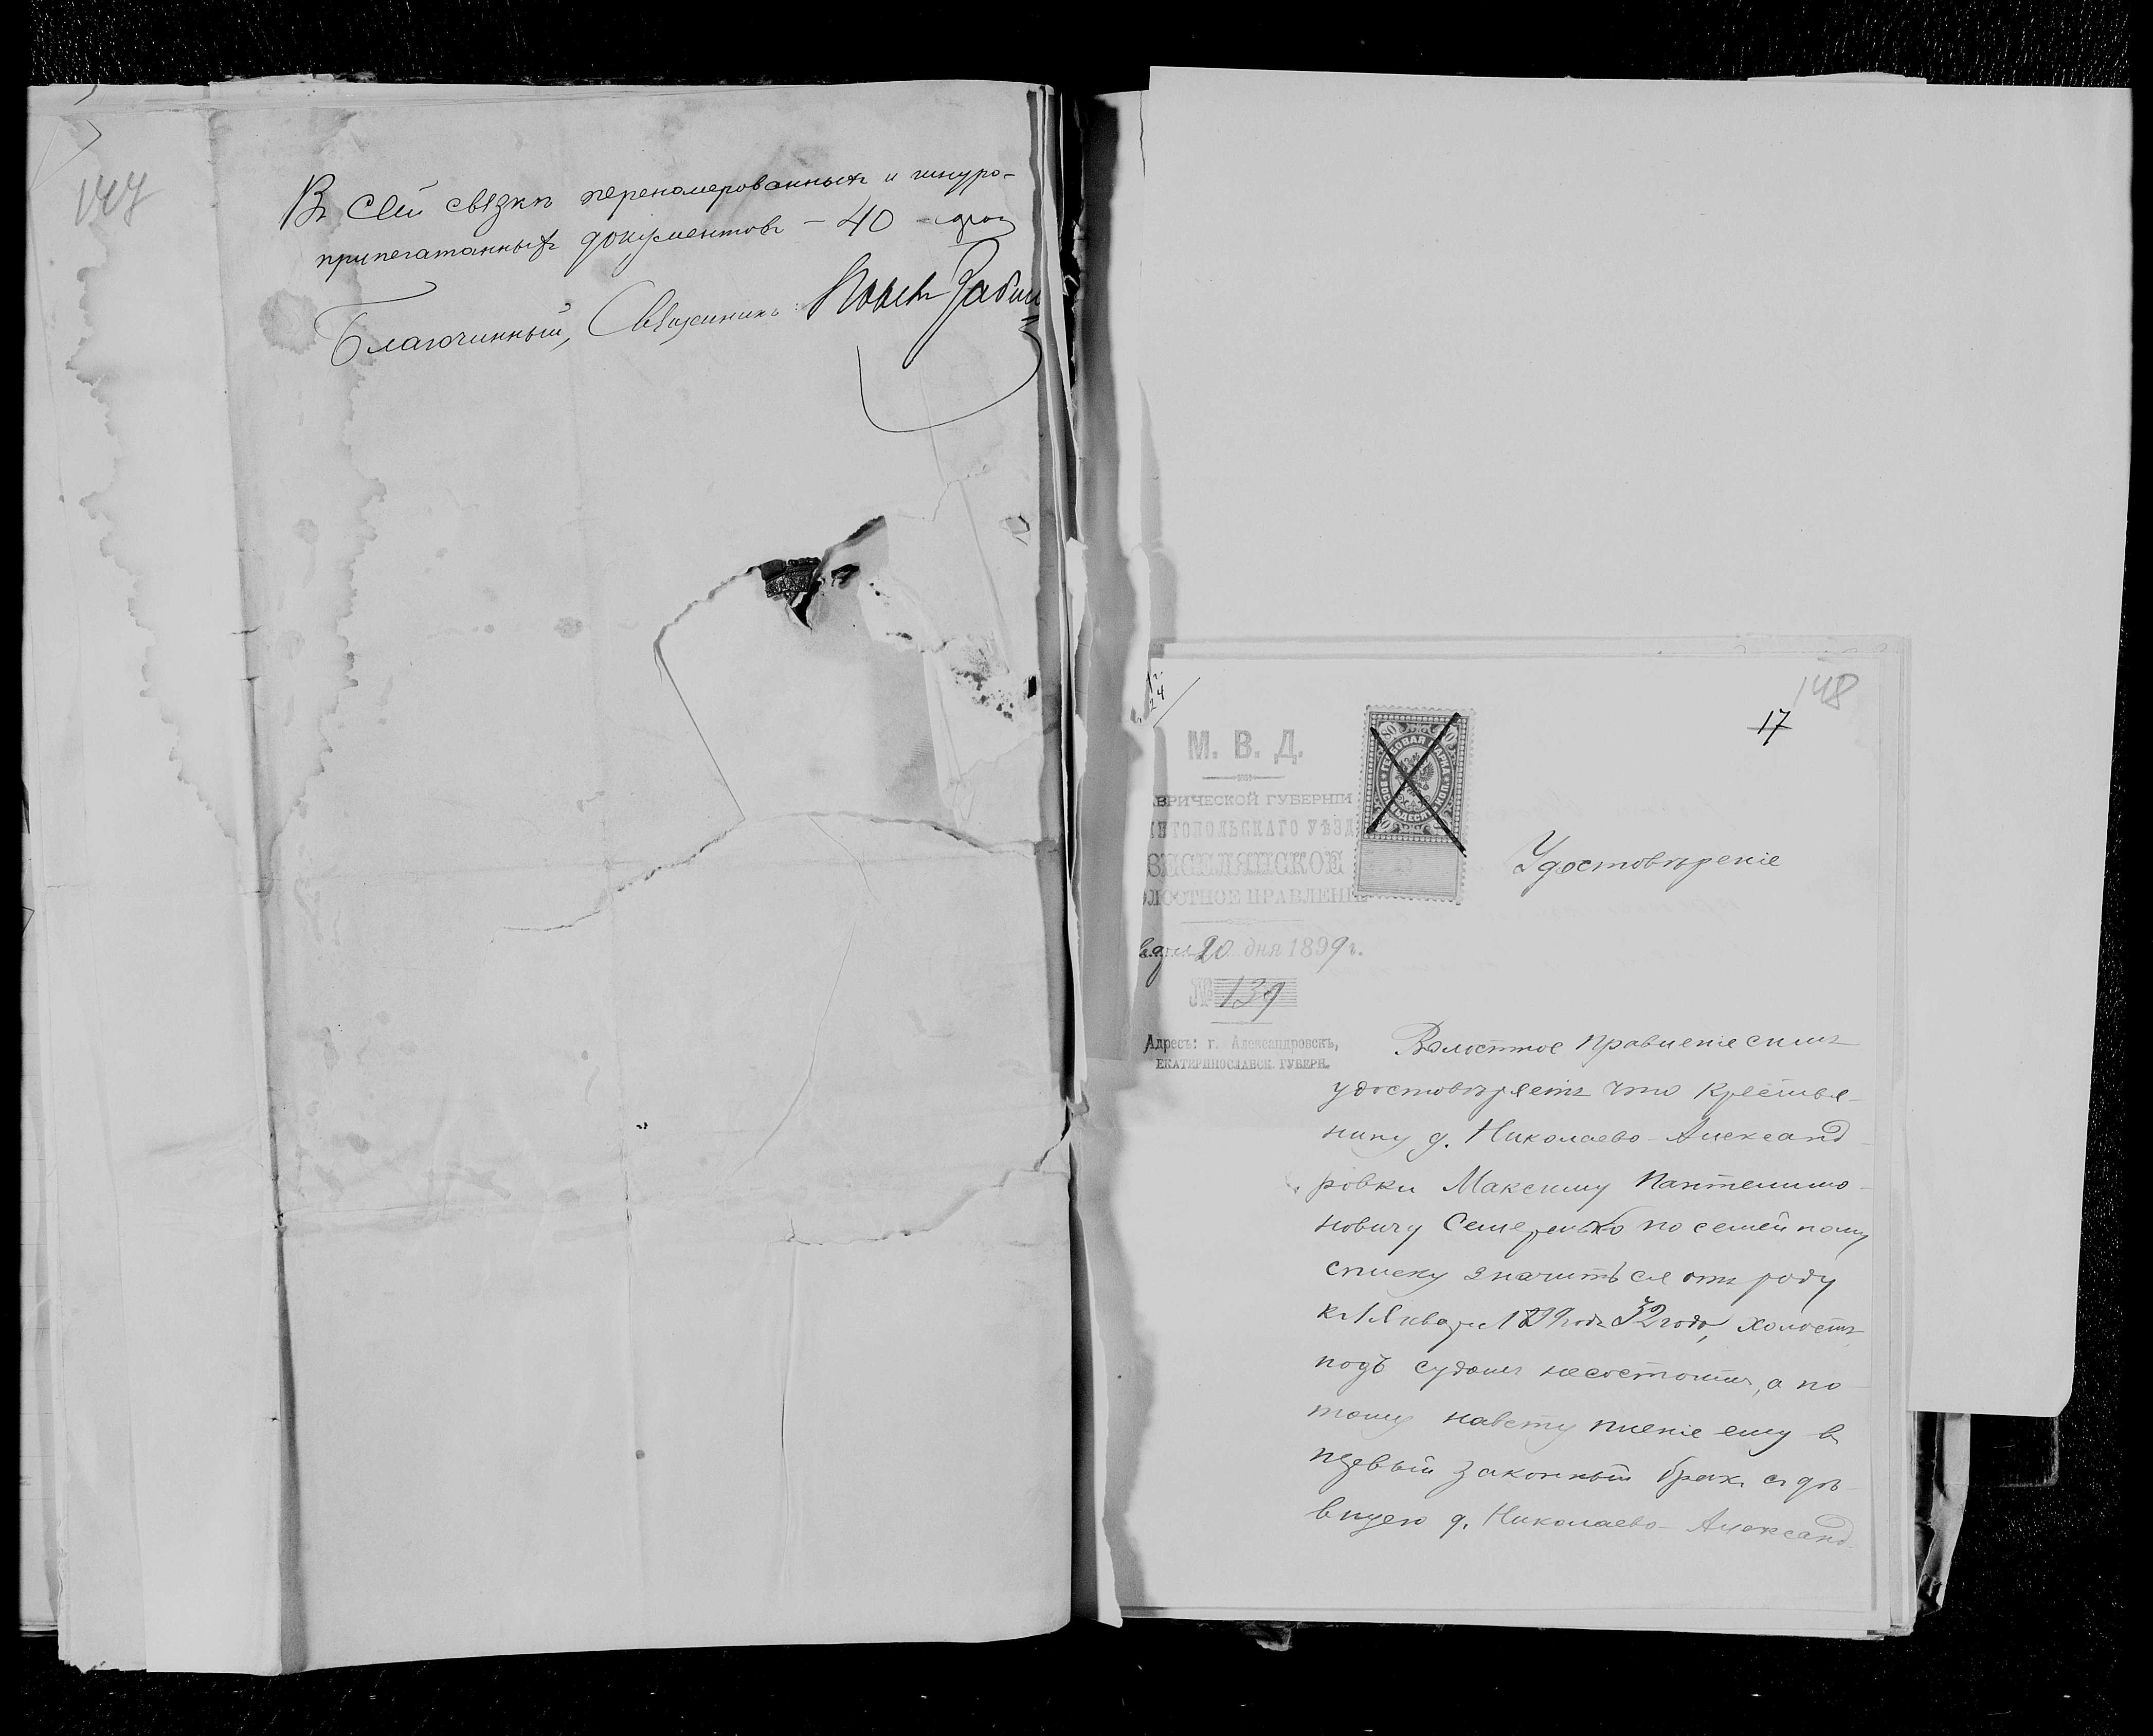 147
Въ сей связкѣ перенумерованныхъ и шнуро-
припечатанныхъ документовъ – 40 –
Благочинный, Священникъ
148
17
М. В. Д.
ВРИЧЕСКОЙ ГУБЕРНІИ
ИТОПОЛЬСКАГО УѢЗД
ВЕСЕЛЯНСКОЕ
ОЛОСТНОЕ ПРАВЛЕНІЕ
20 дня 1899 г.
№ 139
Адресъ: г. Александровскъ,
ЕКАТЕРИНОСЛАВСК. ГУБЕРН.
ГЕРБОВАЯ МАРКА
80
Удостовѣреніе
Волостное Правленіе симъ
удостовѣряетъ что крестья-
нину д. Николаево-Александ-
ровки Максиму Пантелимо-
новичу Семеренько по семейному
списку значиться отъ роду
къ 1 Января 1899 года 32 года, холостъ
подъ судомъ несостоитъ, а по-
тому навступленіе ему въ
первый законный бракъ съ дѣ-
вицею д. Николаево-Александ-